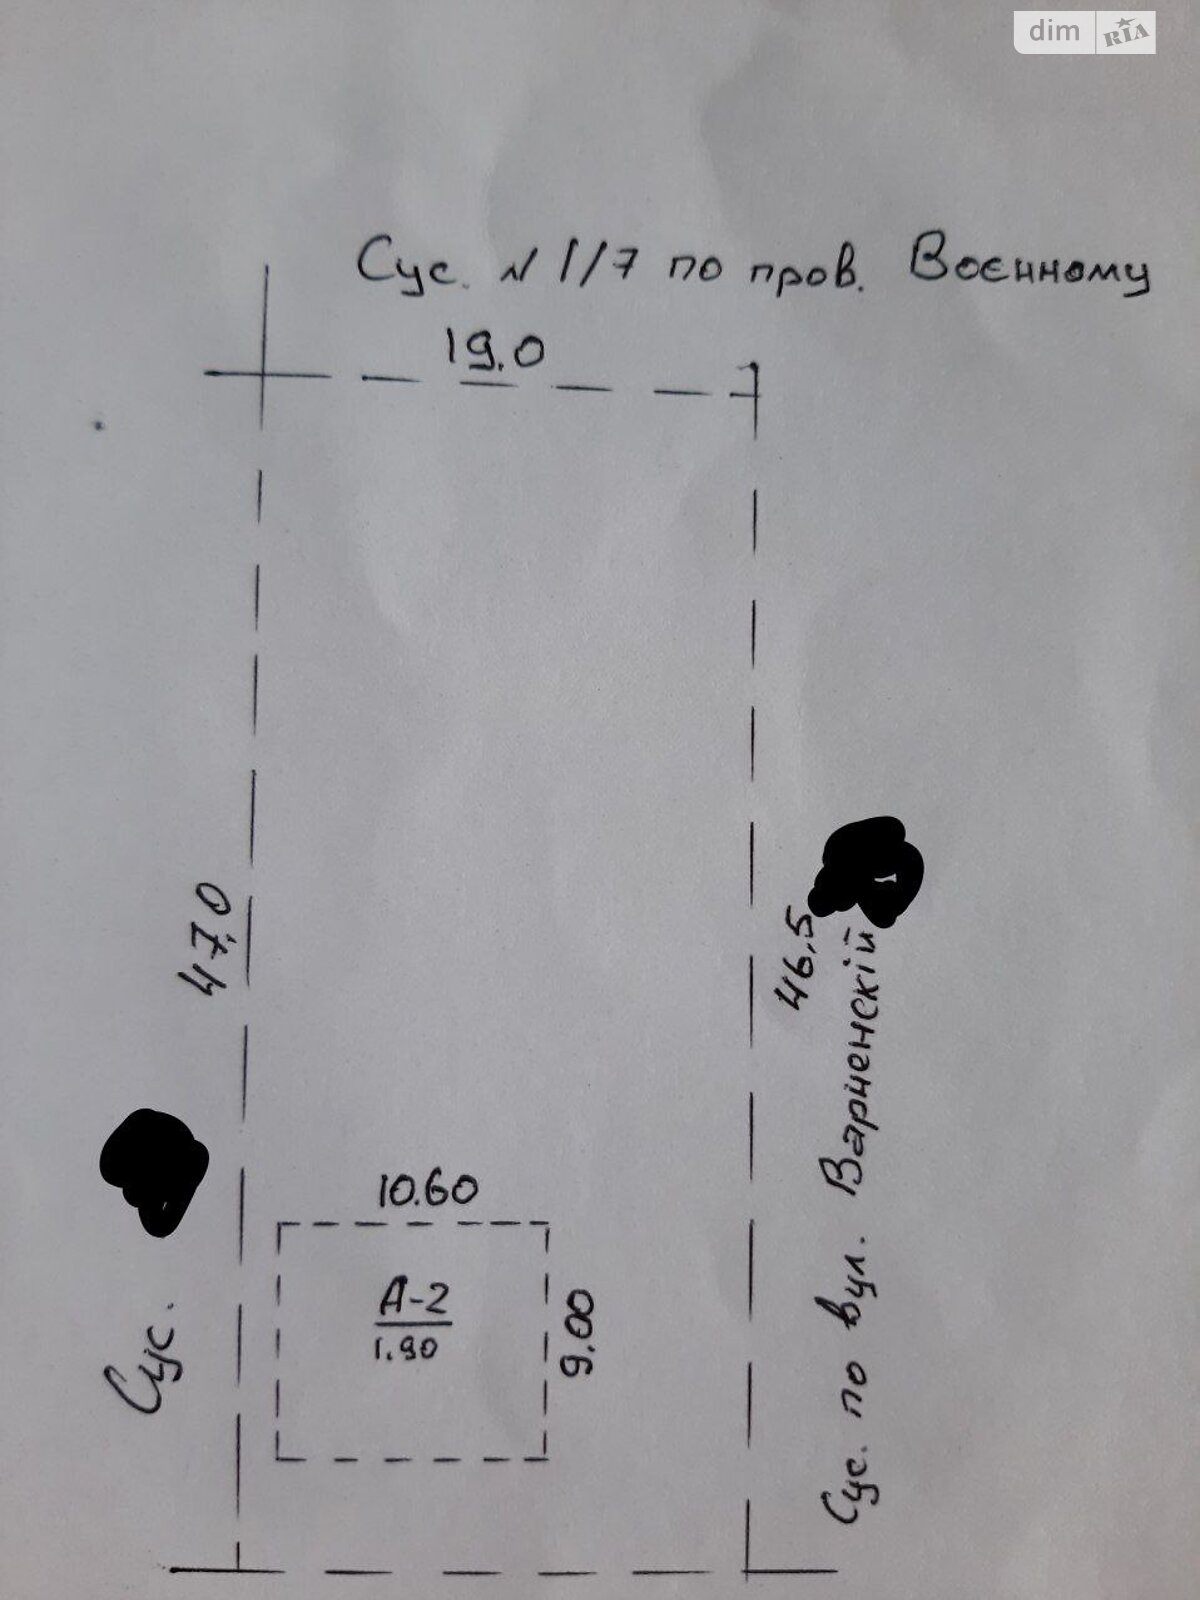 dim RIA
Сус. № 1/7 по пров. Воєнному
19.0
47,0
46,5
Сус. по вул. Варненскій
Сус.
10.60
А-2
1.90
9.00